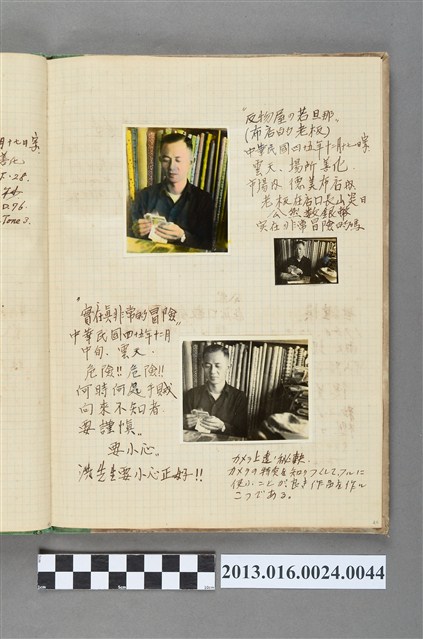 月十七日摂
善化
F.28.
D.76.
Tone 3.
"反物屋の若旦那"
(布店的老板)
中華民國四五年十二月十七日摂
雲天. 場所善化.
市場 德美布店
老板在店口
公然数銀幣
実在非常冒險的
"實在真非常的冒險"
中華民國四五年十二月
中旬. 雲天.
危險!! 危險!!
何時何處干賊
向來不知者
要謹慎。
要小心。
洪先生要小心正好!!
カメラ上達の秘訣.
カメラの特質を知りつくして、フルに
使ふことが良き作品を作る
こつである。
2013.016.0024.0044